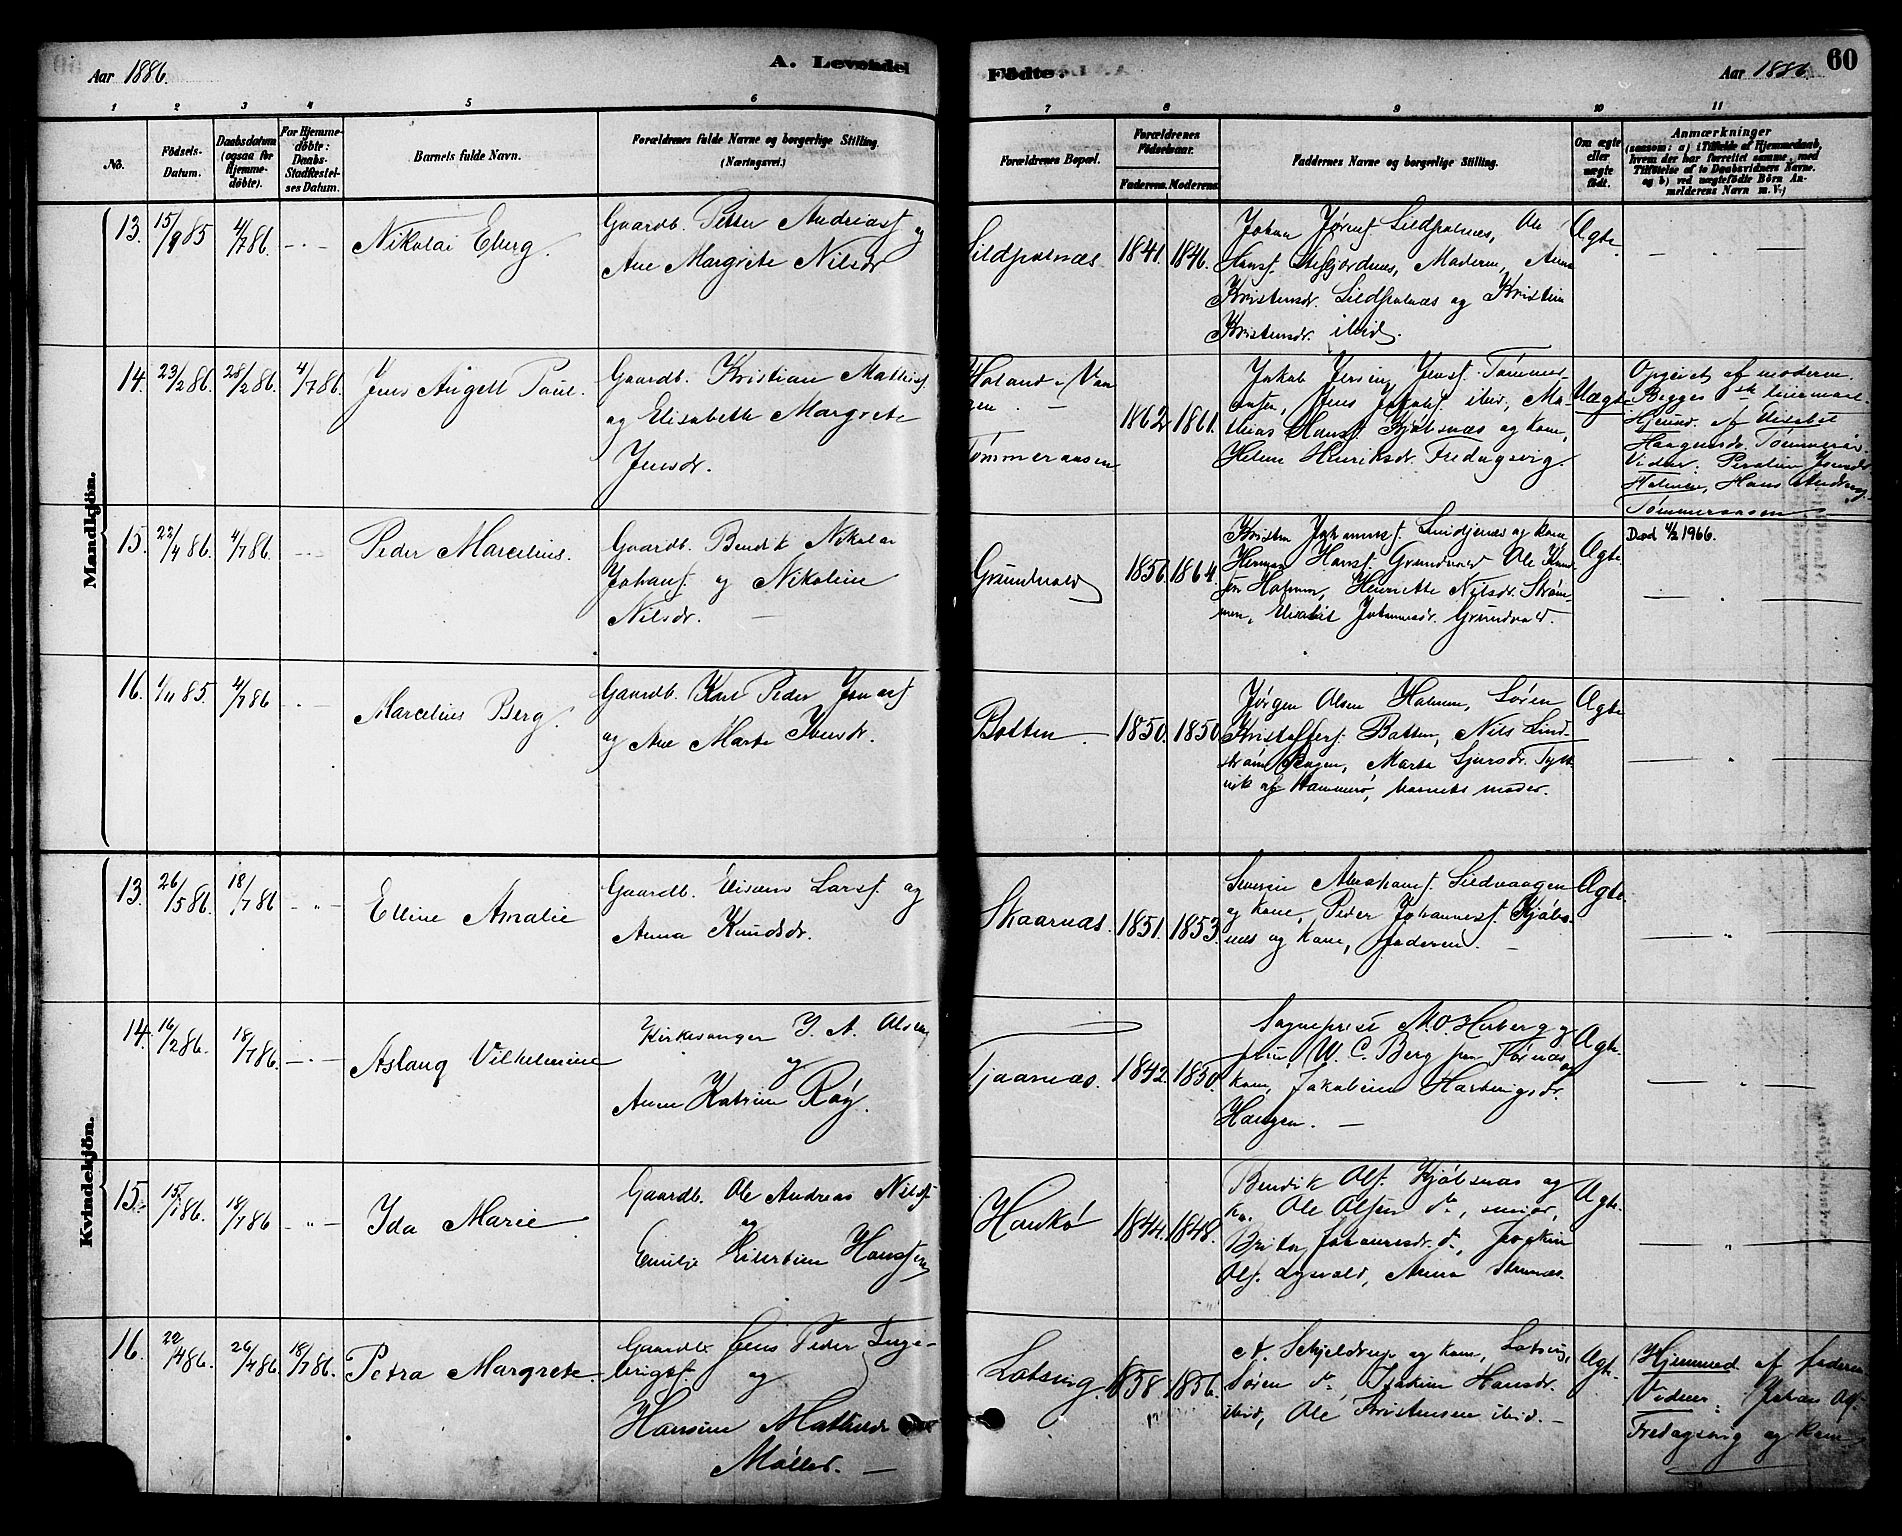 Aar 1886.
A. Levende
Fødte.
Aar 1886.
60
1 2 3 4 5 6 7 8 9 10 11
No.
Födsels-
Datum.
Daabsdatum
(ogsaa for
Hjemme-
døbte).
For Hjemme-
døbte:
Daabs-
Stadfæstel-
ses Datum.
Barnets fulde Navn.
Forældrenes fulde Navne og borgerlige Stilling.
(Næringsvei.)
Forældrenes Bopæl.
Forældrenes
Födselsaar.
Faderens. Moderens.
Faddernes Navne og borgerlige Stilling.
Om ægte
eller
uægte
født.
Anmærkninger
(saasom: a) i Tilfælde af Hjemmedaab,
hvem der har forrettet samme, med
Tilføielse af to Daabsvidners Navne,
og b) ved uægtefødte Börn An-
melderens Navn m. V.)
Mandkjön.
13. 15/9 85 4/7 86.
Nikolai Eberg.
Gaardb. Petter Andreasf og
Ane Margrete Nilsdr
Sildpolnæs
1841. 1846.
Johan Jørgf Sildpolnæs, Ole
Hansf. Moderen, Anna
Kristensdr. Sildpolnæs og Kristin
Kristensdr. ibid.
Ægte.
14. 23/2 86. 28/2 86. 4/7 86.
Jens Angell Paul.
Gaardb. Kristian Mathisf
og Elisabeth Margrete
Jensdr.
Holand i Vaa
gen.
Tømmeraasen
1862 1861.
Jakob Jensen Tømmer
aasen, Jens Jakobf ibid, Ma-
thias Hansf. Kjøbsnæs og kone,
Helene Henriksdr. Fredagsvig.
Uægte
Opgivet af moderen.
Begges 1ste leiermaal.
Hjemd. af Elisabet
Haagensdr. Tømmeraas.
Vidner: Jensdr
Holmen, Hans Andreas
Tømmeraasen
15. 22/4 86. 4/7 86.
Peder Marcelius.
Gaardb. Bendik Nikolai
Johansf og Nikoline
Nilsdr.
Grundvold
1856. 1864.
Kristen Johannesf. og kone
Herman Hansf. Grundvold Ole
Holmen, Henriette Nilsdr. Strøm-
men, Elisabet Johannesdr. Grundvold.
Ægte
Død 4/2 1966.
16. 1/11 85. 4/7 86
Marcelius Berg.
Gaardb. Karl Peder Jonasf
og Ane Marta Ibensdr.
Botten
1850. 1850
Jørgen Olsen Holmen, Søren
Kristoffersf. Botten, Nils Lind-
strøm Marta Sjursdr. Tyt
vik af Hammerø, barnets moder.
Ægte
Kvindekjön.
13. 26/5 86. 18/7 86
Elline Amalie
Gaardb. Larsf og
Anna Knudsdr.
Skaarnæs.
1851. 1853.
Severin Abrahamsf. Sildvaagen
og kone, Peder Johannesf. Kjøbs-
næs og kone, faderen.
Ægte
14. 16/2 86. 18/7 86.
Aslaug Vilhelmine
Kirkesanger J. A. Olsen
og
Anne Katrine Røg.
Tjaarnæs.
1842. 1850.
Sogneprest M. O. Herberg og
frue, W. C. Berg Tørnæs og
kone, Jakobine Hartvigsdr.
Haugen.
Ægte.
15. 15/1 86. 18/7 86
Ida Marie
Gaardb. Ole Andreas Nilsf.
og
Emilie Eilertine Hansen
Haukø
1844. 1848.
Bendik Olf. Kjøbsnæs og
ko. Ole Olsen do, senior,
Johannesdr. do, Joakim
Olf. Anna
Ægte.
16. 22/4 86. 26/4 86. 18/7 86.
Petra Margrete.
Gaardb. Jens Peder Inge-
brigtsf. og
Hansine Mathilde
Møller.
Lotsvig
1858. 1856.
A. Schjeldrup og kone, Lotsvig,
Søren do, Joakim Hansdr.
ibid, Ole Kristensen ibid.
Ægte
Hjemmed af faderen
Vidner: Johan Olf.
Fredagsvig og kone